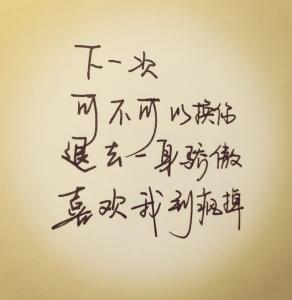 下一次
可不可以换你
退去一身骄傲
喜欢我到疯掉